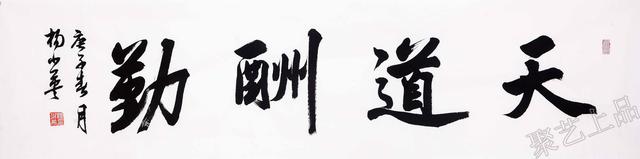 天道酬勤
庚子春月
杨少英
聚艺上品